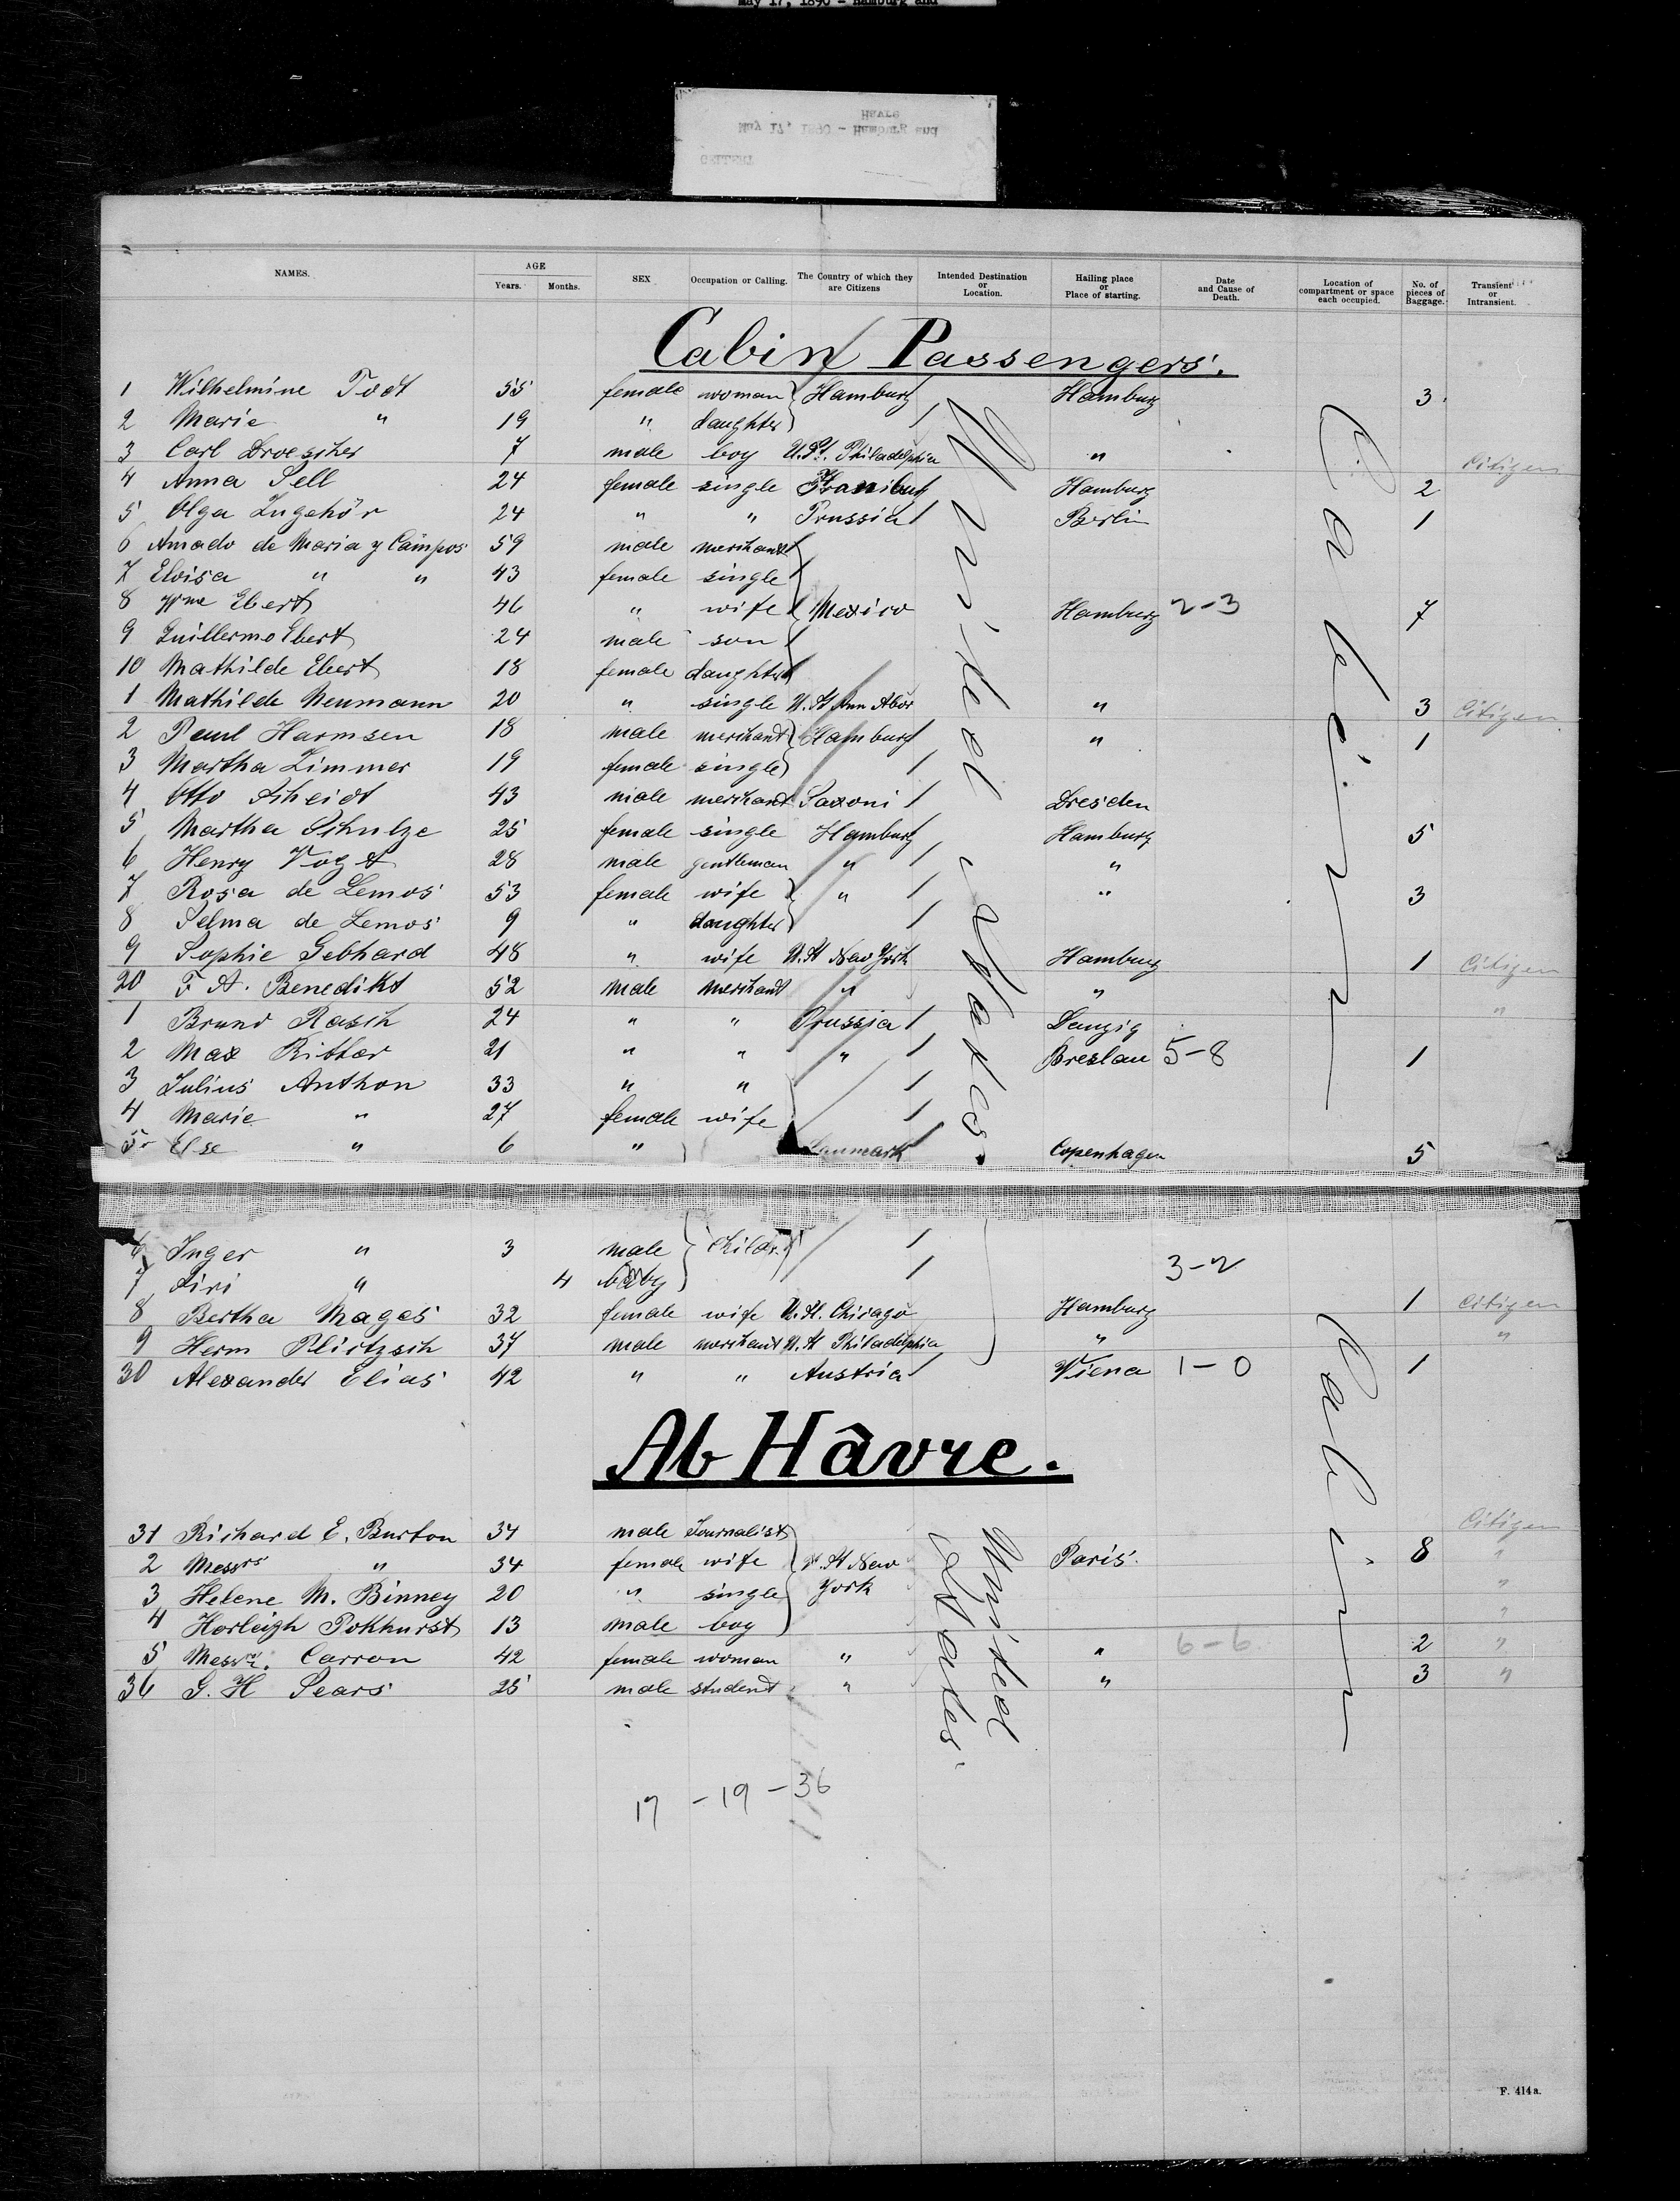 May 17, 1890 - Hamburg and
Havre
May 17, 1890 - Hamburg and
GELLERT
NAMES. AGE Years. Months. SEX Occupation or Calling. The Country of which they are Citizens Intended Destination or Location. Hailing place or Place of starting. Date and Cause of Death. Location of compartment or space each occupied. No. of pieces of Baggage. Transient or Intransient.
Cabin Passengers.
1 Wilhelmine Todt 55 female woman Hamburg Hamburg 3
2 Marie " 19 " daughter
3 Carl Droescher 7 male boy U.St. Philadelphia " Citizen
4 Anna Sell 24 female single Hamburg 2
5 Olga Zugehör 24 " " Prussia Berlin 1
6 Amado de Maria y Campos 59 male merchant
7 Eloisa " " 43 female single
8 Wme Ebert 46 " wife Mexico Hamburg 2-3 7
9 Guillermo Ebert 24 male son
10 Mathilde Ebert 18 female daughter
1 Mathilde Neumann 20 " single U. St Ann Abor " 3 Citizen
2 Paul Harmsen 18 male merchant Hamburg " 1
3 Martha Zimmer 19 female single
4 Otto Scheidt 43 male merchant Saxoni Dresden
5 Martha Schulze 25 female single Hamburg Hamburg 5
6 Henry Vogt 28 male gentleman " "
7 Rosa de Lemos 53 female wife " " 3
8 Selma de Lemos 9 " daughter
9 Sophie Gebhard 48 " wife U. St New York Hamburg 1 Citizen
20 F A. Benedikt 52 male merchant " " "
1 Bruno Rasch 24 " " Prussia Danzig
2 Max Ritter 21 " " " Breslau 5-8 1
3 Julius Anthon 33 " "
4 Marie " 27 female wife
5 Else " 6 " Danmark Copenhagen 5
United States
Cabin
6 Inger " 3 male Childr.
7 Siri " 4 baby 3-2
8 Bertha Mages 32 female wife U. St. Chicago Hamburg 1 Citizen
9 Herm Plietzsch 37 male merchant U. St Philadelphia " "
30 Alexander Elias 42 " " Austria Viena 1-0 1
Ab Hâvre.
31 Richard E. Burton 34 male Journalist Citizen
2 Messrs " 34 female wife U. St New York Paris 8 "
3 Helene M. Binney 20 " single "
4 Horleigh Pokhurst 13 male boy "
5 Carron 42 female woman " " 6-6 2 "
36 G. H Sears 25 male student " " 3 "
United States
Cabin
17 - 19 - 36
F. 414a.